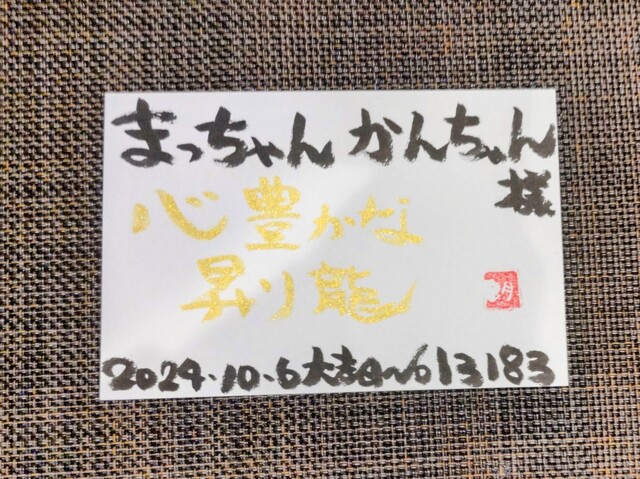 まっちゃん かんちゃん
様
心豊かな
昇り龍
2024.10.6 大吉日〜613183